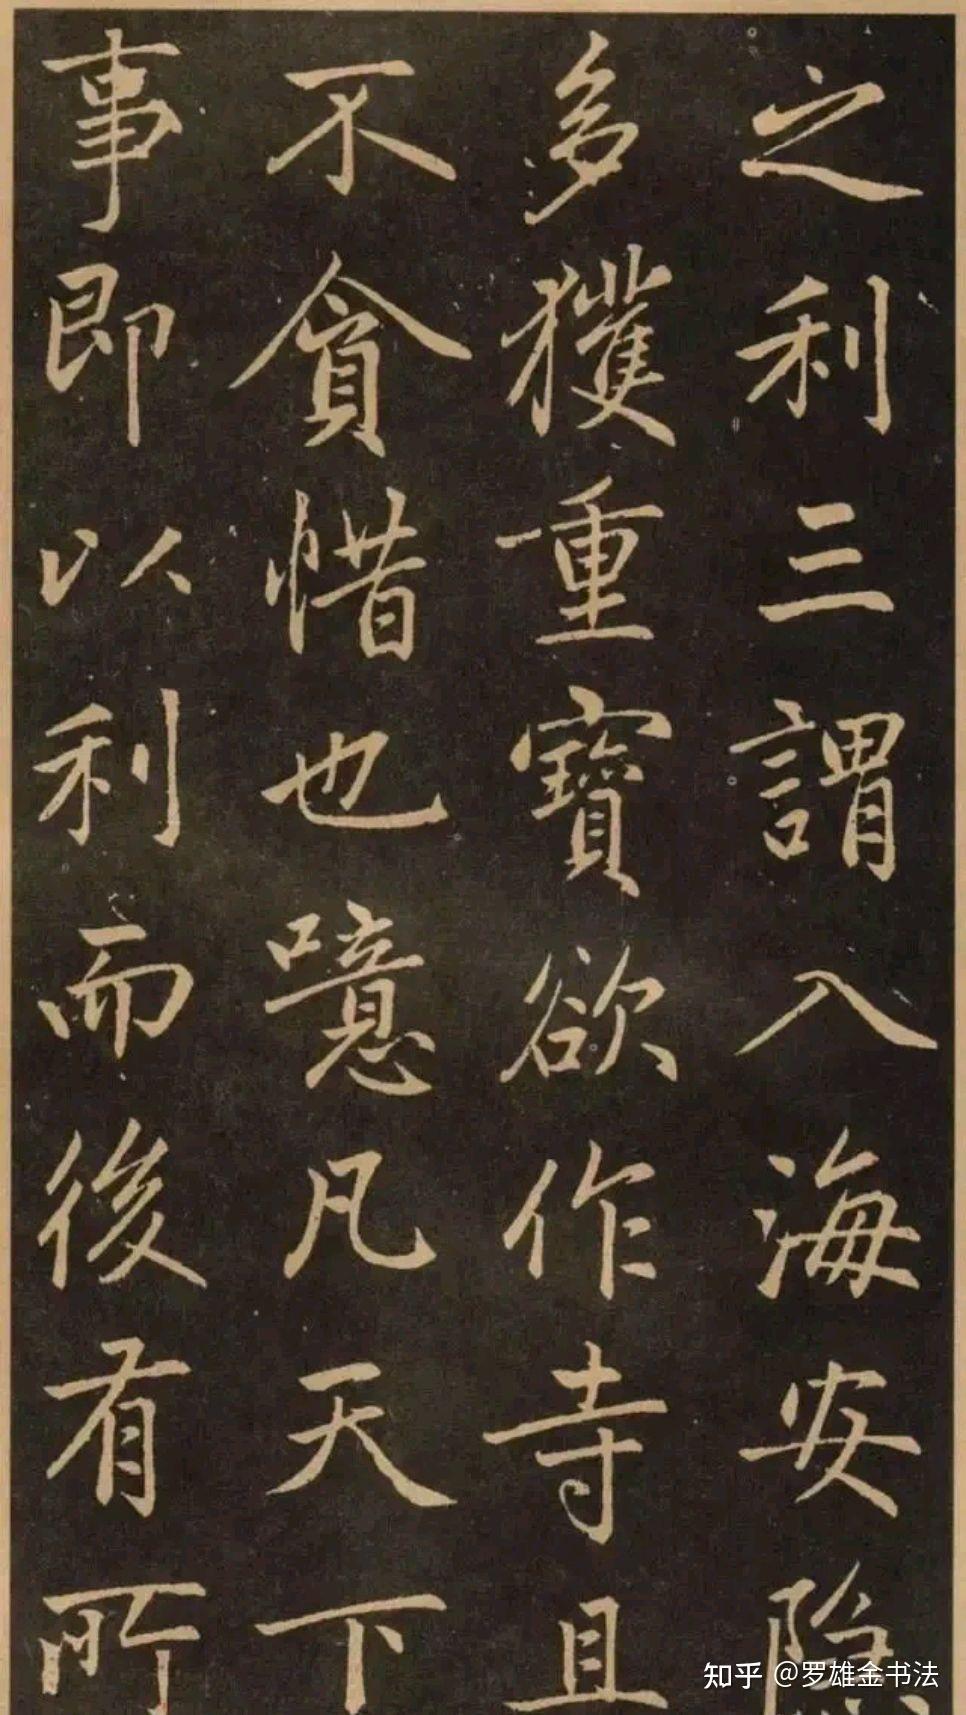 之利三謂入海安隐
多獲重寶欲作寺且
不貪惜也噫凡天下
事即以利而後有所
知乎 @罗雄金书法